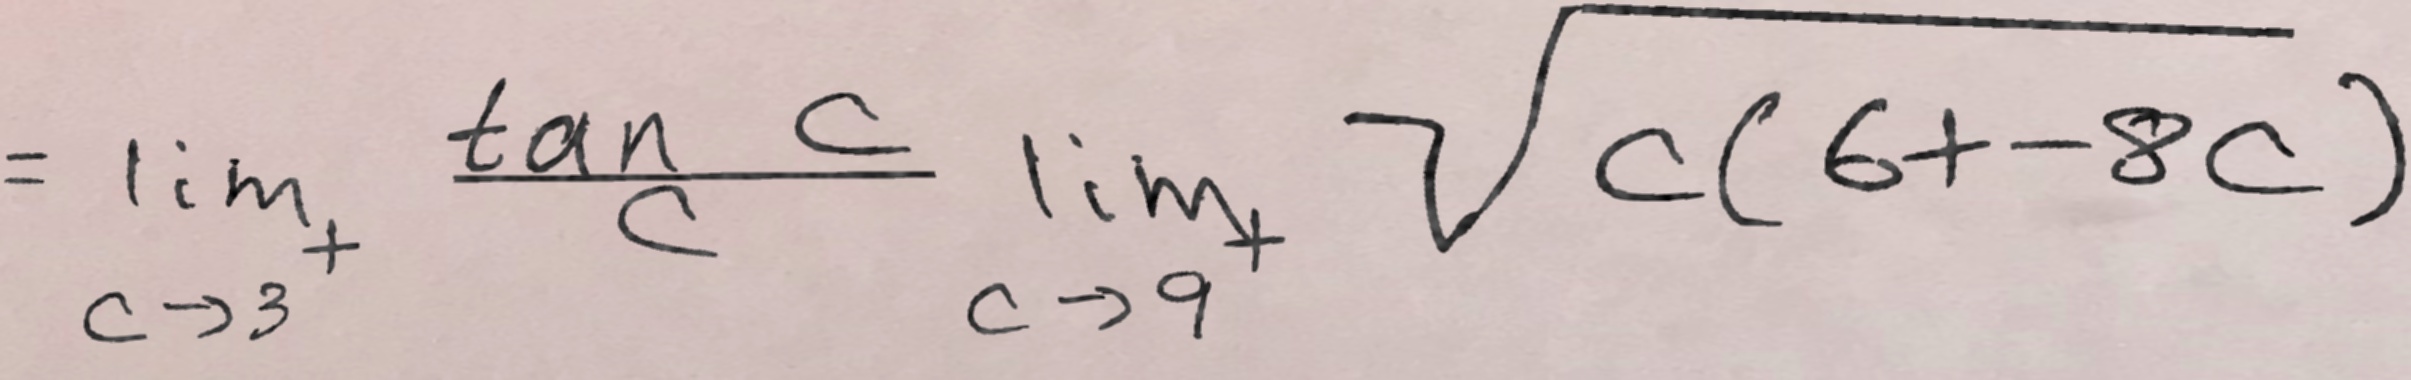 = \lim_{c \to 3^+} \frac{\tan c}{c} \lim_{c \to 9^+} \sqrt{c(6+-8c)}